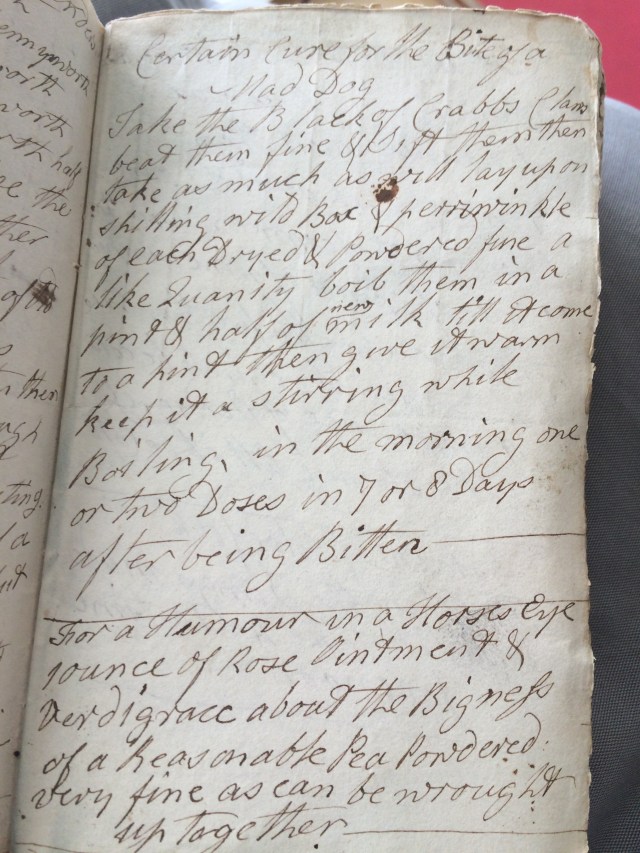 ennyworth
orth
worth
rth half
e the
ther
of
then
ugh
ting
Certain Cure for the Bite of a
Mad Dog
Take the Black of Crabbs Claws
beat them fine & Sift them then
take as much as will lay upon
shilling wild Box & perriwinkle
of each Dryed & Powdered fine a
like Quanity boib them in a
pint & half of new milk till it come
to a pint then give it warm
keep it a stirring while
Boiling, in the morning one
or two Doses in 7 or 8 Days
after being Bitten
For a Humour in a Horses Eye
1ounce of Rose Ointment &
Verdigrace about the Bigness
of a Reasonable Pea Powdered
very fine as can be wrought
up together